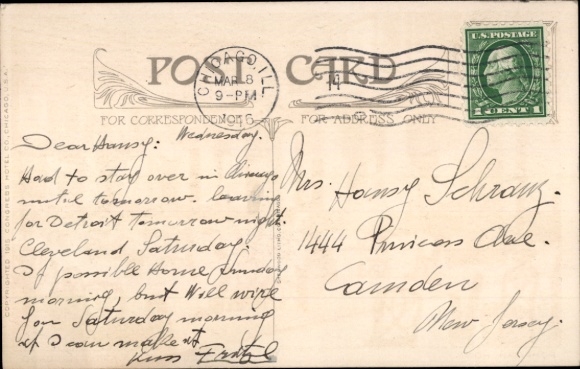 POST CARD
CHICAGO, ILL
MAR 8
9-PM
U.S. POSTAGE
1 CENTS 1
FOR CORRESPONDENCE
FOR ADDRESS ONLY
Wednesday.
Dear Hansy:
Had to stay over in Chicago
until tomorrow. leaving
for Detroit tomorrow night.
Cleveland Saturday.
If possible Home Sunday
morning, but will wire
you Saturday morning
if I can make it
Kuss Fritzl
Mrs. Hansy Schranz.
1444 Princess Ave.
Camden
New-Jersey.